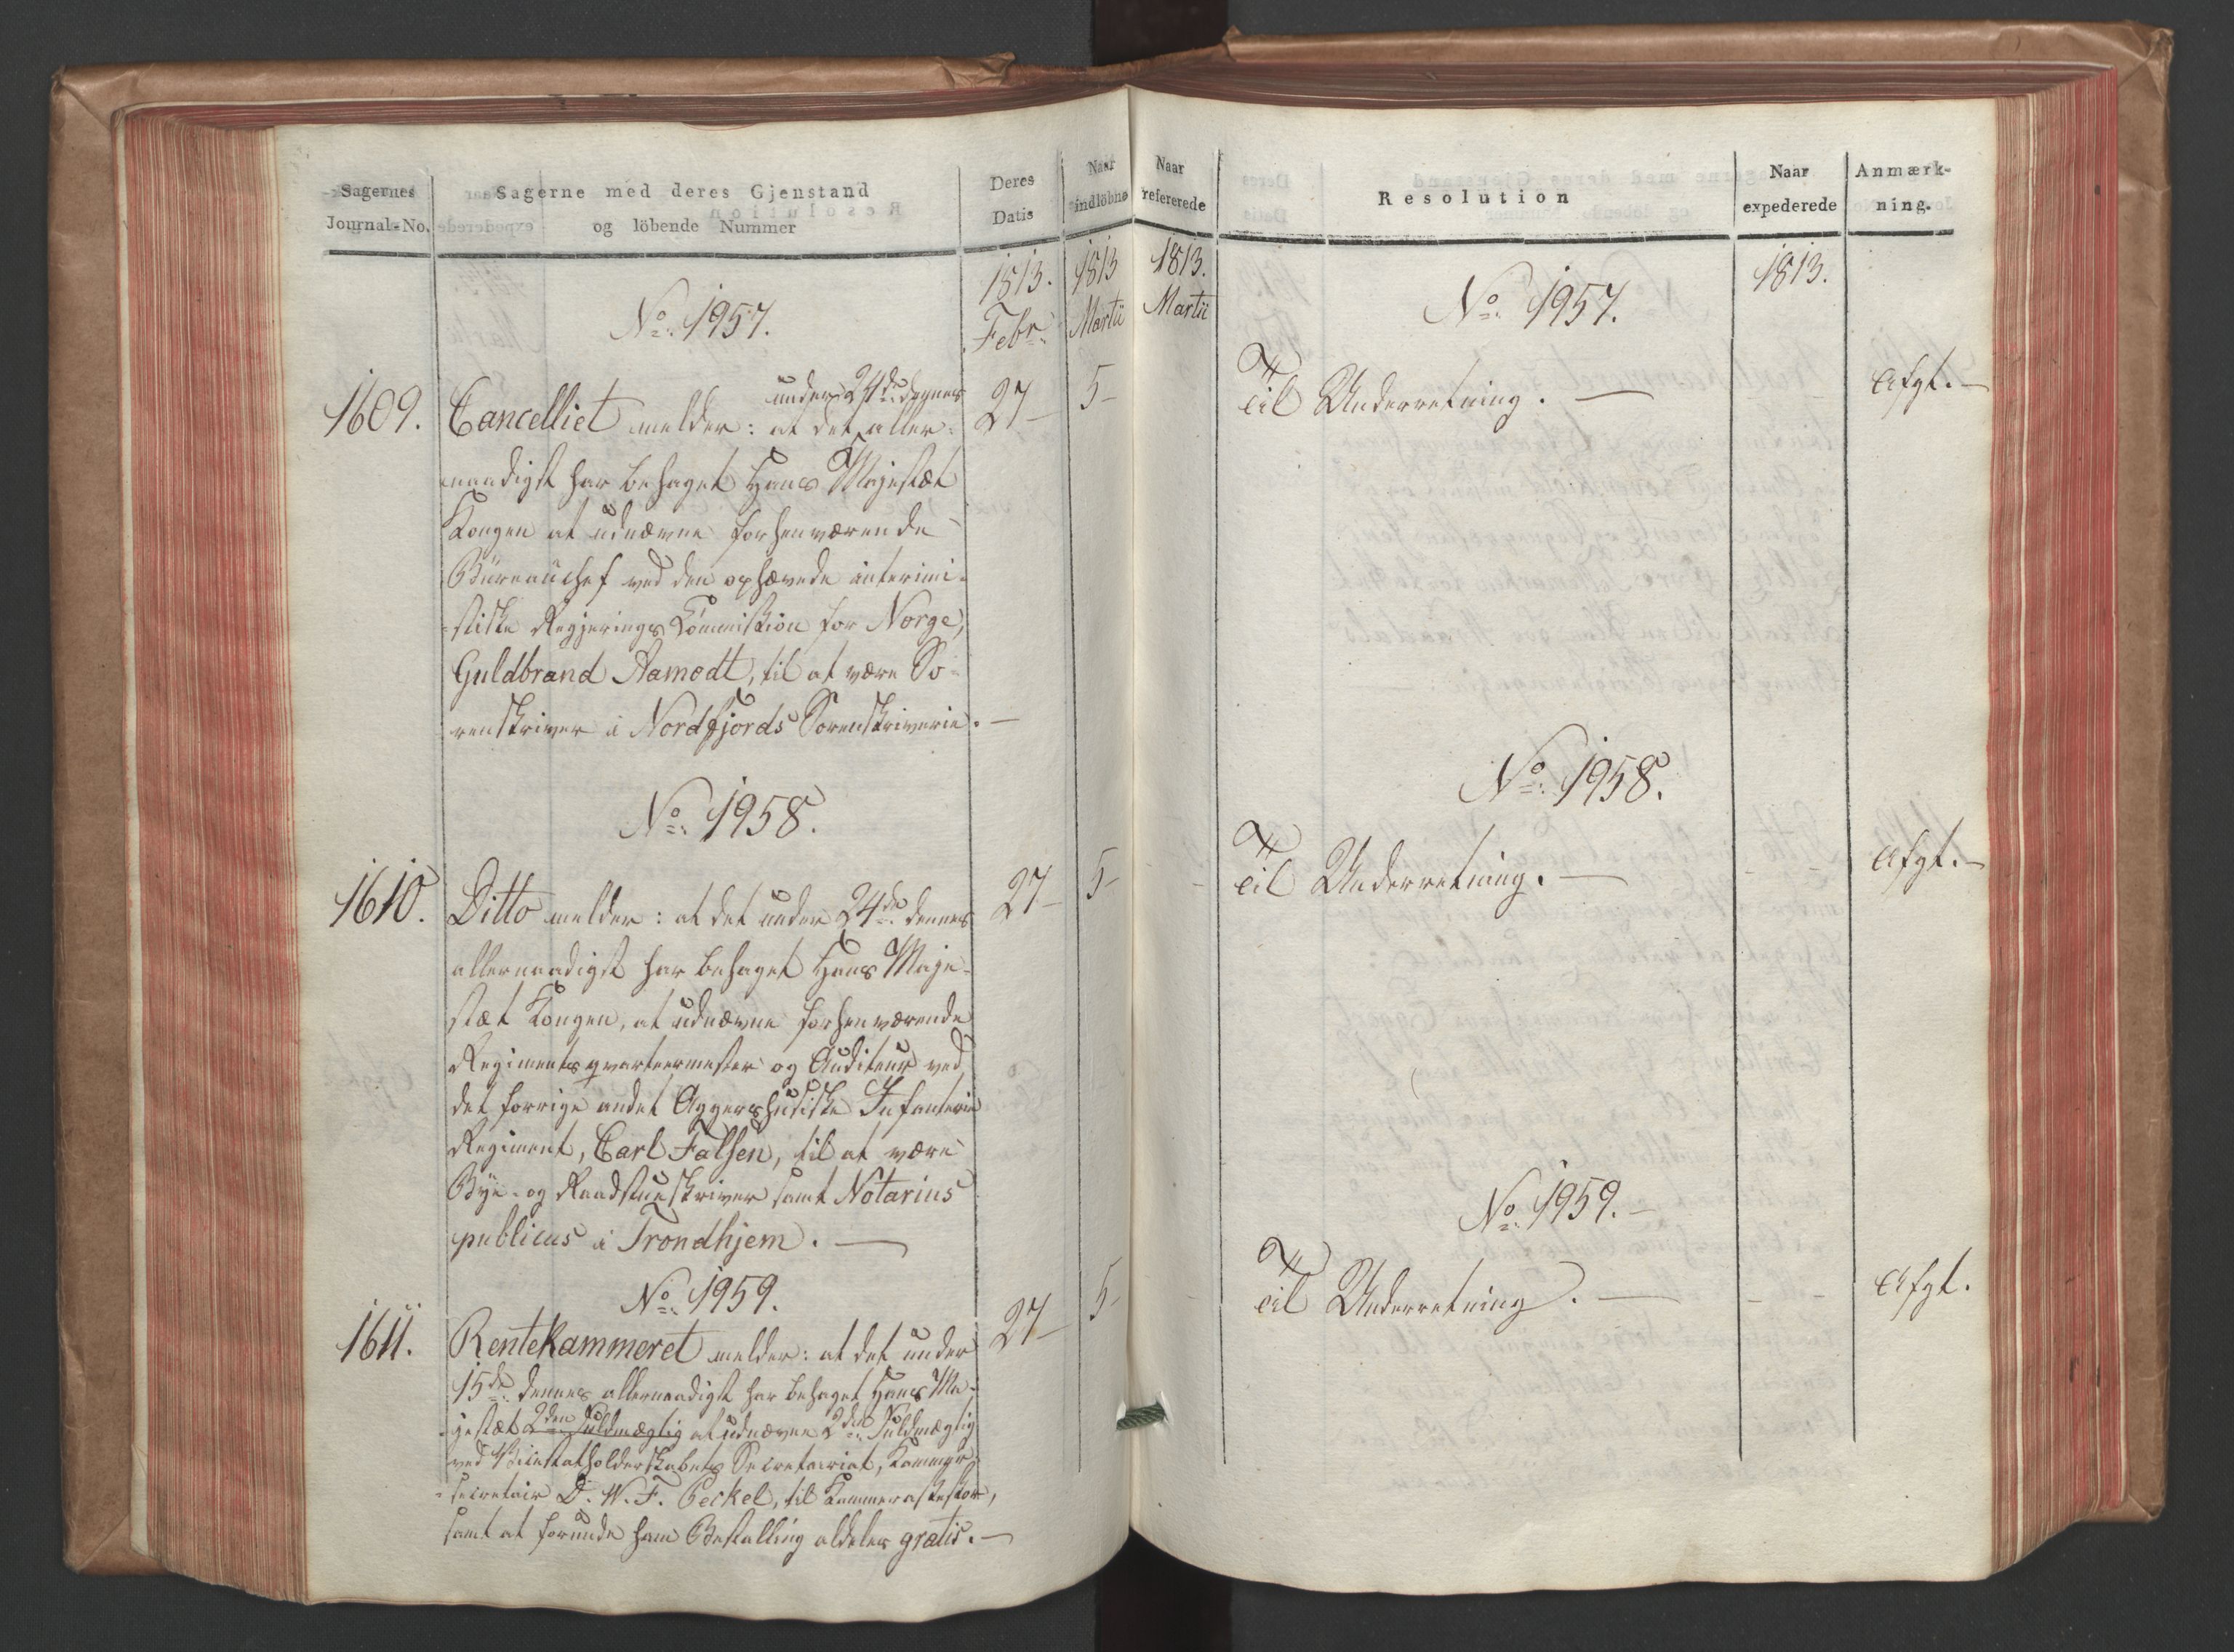 Sagernes
Journal-No.
Sagerne med deres Gjenstand
og löbende Nummer
Deres
Datis
Naar
indlöbne
1813.
Febr:
1813
Martii
No. 1957.
1609.
under 24de dennes
Cancelliet melder: at det aller-
naadigst har behaget Hans Majestæt
Kongen at udnævne forhenværende
Büreauchef ved den ophævede interimi-
stiske Regjerings Commission for Norge,
Guldbrand Aamodt, til at være So-
renskriver i Nordfjords Sorenskriverie. —
27-
5-
No. 1958.
1610.
Ditto melder: at det under 24de dennes
allernaadigst har behaget Hans Maje-
stæt Kongen, at udnævne forhenværende
Regimentsqvarteermester og Auditeur ved
det forrige andet Aggershusiske Infanterie
Regiment, Carl Falsen, til at være
Bye- og Raadstueskriver samt Notarius
publicus i Trondhjem. —
27-
5-
No. 1959.
1611.
Rentekammeret melder: at det under
15de dennes allernaadigst har behaget Hans Ma-
jestæt 2den Fuldmægtig at udnævne 2den Fuldmægtig
ved Vicestatholderskabets Secretariat, Kammer-
secretair D. W. F. Peckel, til Kammerassessor,
samt at forunde ham Bestalling aldeles gratis. —
27-
5-
Naar
refererede
Resolution
Naar
expederede
Anmærk-
ning.
1813.
Martii
1813.
No. 1957.
Til Underretning. —
Afgt. —
No. 1958.
Til Underretning. —
Afgt. —
No. 1959. —
Til Underretning. —
Afgt.